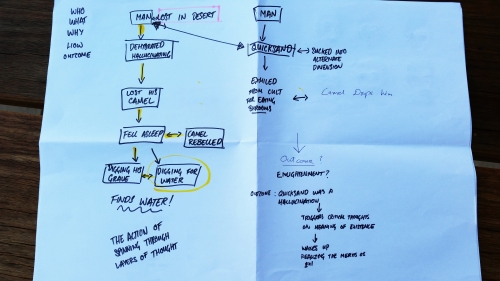 WHO
WHAT
WHY
HOW
OUTCOME
MAN LOST IN DESERT
DEHYDRATED
HALLUCINATING
LOST HIS
CAMEL
FELL ASLEEP
CAMEL
REBELLED
DIGGING HIS
GRAVE
DIGGING FOR
WATER
FINDS WATER!
THE ACTION OF
SPINNING THROUGH
LAYERS OF THOUGHT
MAN
QUICKSAND
SUCKED INTO
ALTERNATE
DIMENSION
EXHILED
FROM CULT
FOR EATING
Camel
Outcome!
ENLIGHTENMENT?
OUTCOME: QUICKSAND WAS A
HALLUCINATION
TRIGGERS CRITICAL THOUGHTS
ON MEANING OF EXISTENCE
WAKES UP
REALIZING THE MERITS OF